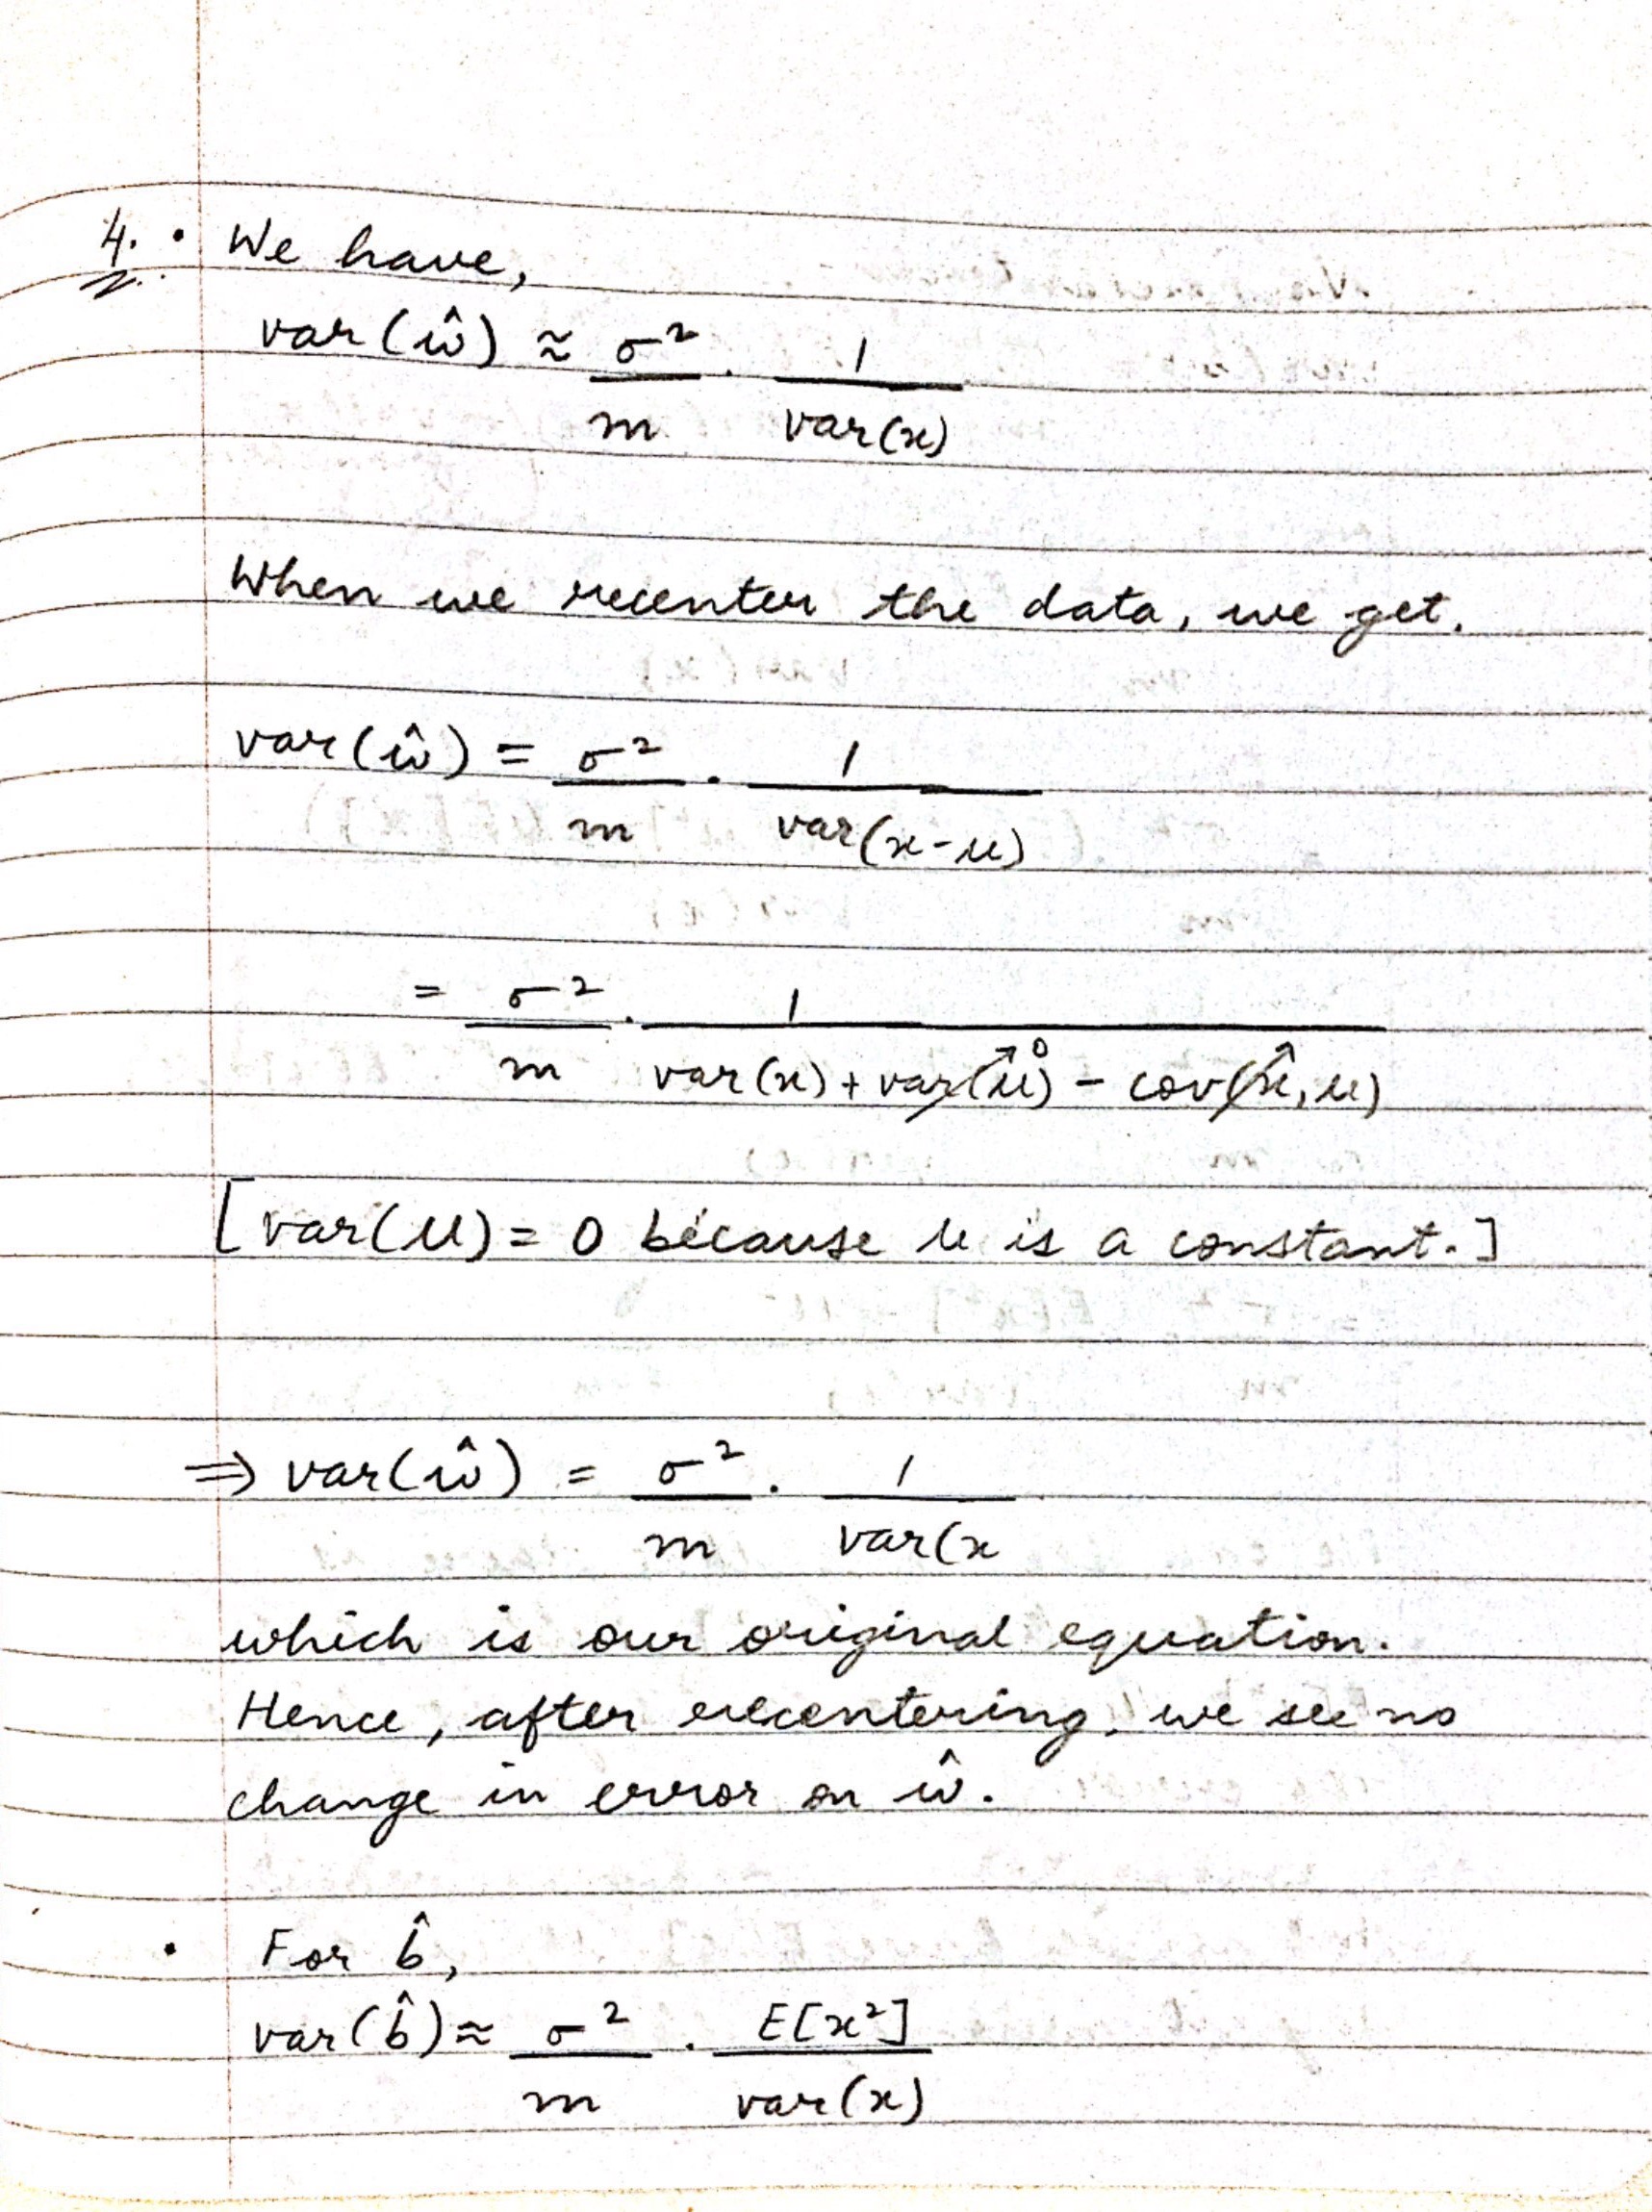 4. • We have,
var(ŵ) ≈ σ²/m · 1/var(x)
When we recenter the data, we get.
var(ŵ) = σ²/m · 1/var(x-μ)
= σ²/m · 1/var(x) + var(μ)⁰ - cov(x, μ)
[var(μ) = 0 because μ is a constant.]
⇒ var(ŵ) = σ²/m · 1/var(x
which is our original equation.
Hence, after recentering, we see no
change in error on ŵ.
• For b̂,
var(b̂) ≈ σ²/m · E[x²]/var(x)